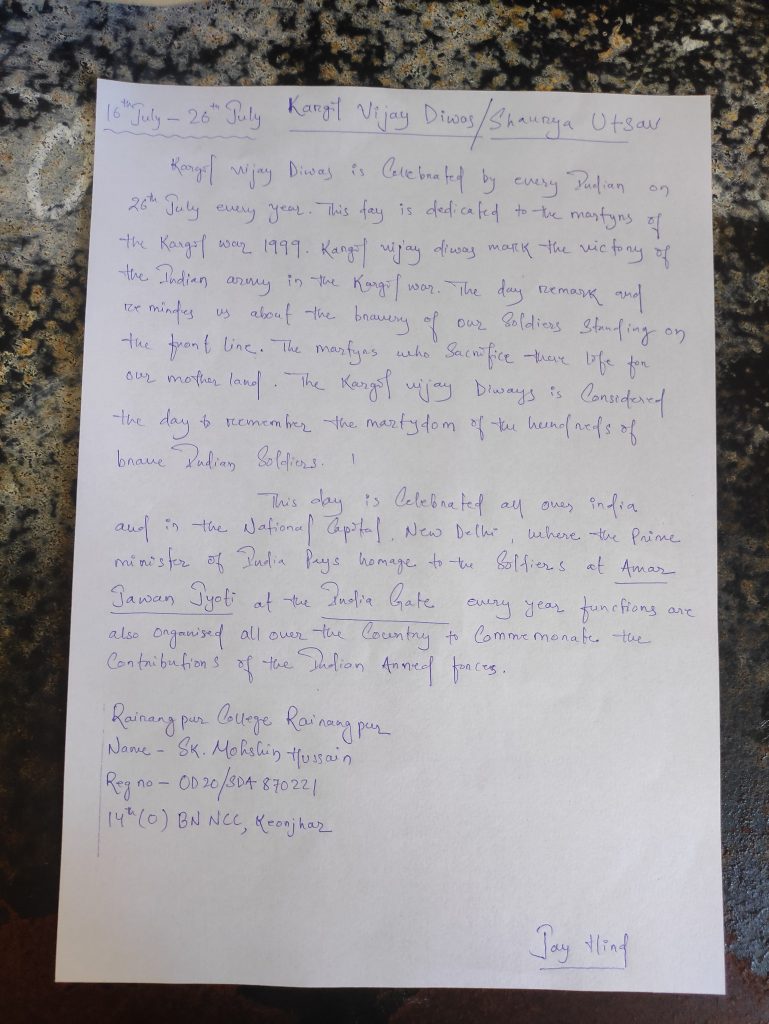 16th July - 26th July Kargil Vijay Diwas/Shaurya Utsav
Kargil vijay Diwas is Celebrated by every Indian on
26th July every year. This day is dedicated to the martyrs of
the Kargil war 1999. Kargil vijay diwas mark the victory of
the Indian army in the Kargil war. The day remark and
remindes us about the bravery of our Soldiers Standing on
the front line. The martyrs who Sacrifice there life for
our mother land. The Kargil vijay Diways is Considered
the day to remember the martydom of the hundreds of
brave Indian Soldiers.
This day is Celebrated all over india
and in the National Capital, New Delhi, where the Prime
minister of India Pays homage to the Soldiers at Amar
Jawan Jyoti at the India Gate every year functions are
also organised all over the Country to Commemorate the
Contributions of the Indian Armed forces.
Rairangpur College Rairangpur
Name - SK. Mohshin Hussain
Reg no - OD20/SDA 870221
14th (O) BN NCC, Keonjhar
Jay Hind